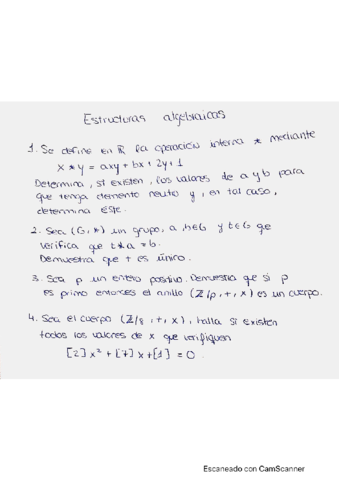 Estructuras algebraicas
1. Se define en ℝ la operación interna * mediante
x * y = axy + bx + 2y + 1
Determina, si existen, los valores de a y b para
que tenga elemento neutro y, en tal caso,
determina este.
2. Sea (G, *) un grupo, a, b∈G y t∈G que
verifica que t*a = b.
Demuestra que t es único.
3. Sea p un entero positivo. Demuestra que si p
es primo entonces el anillo (ℤ/p, +, x) es un cuerpo.
4. Sea el cuerpo (ℤ/8, +, x), halla si existen
todos los valores de x que verifiquen
[2]x² + [7]x + [1] = 0.
Escaneado con CamScanner